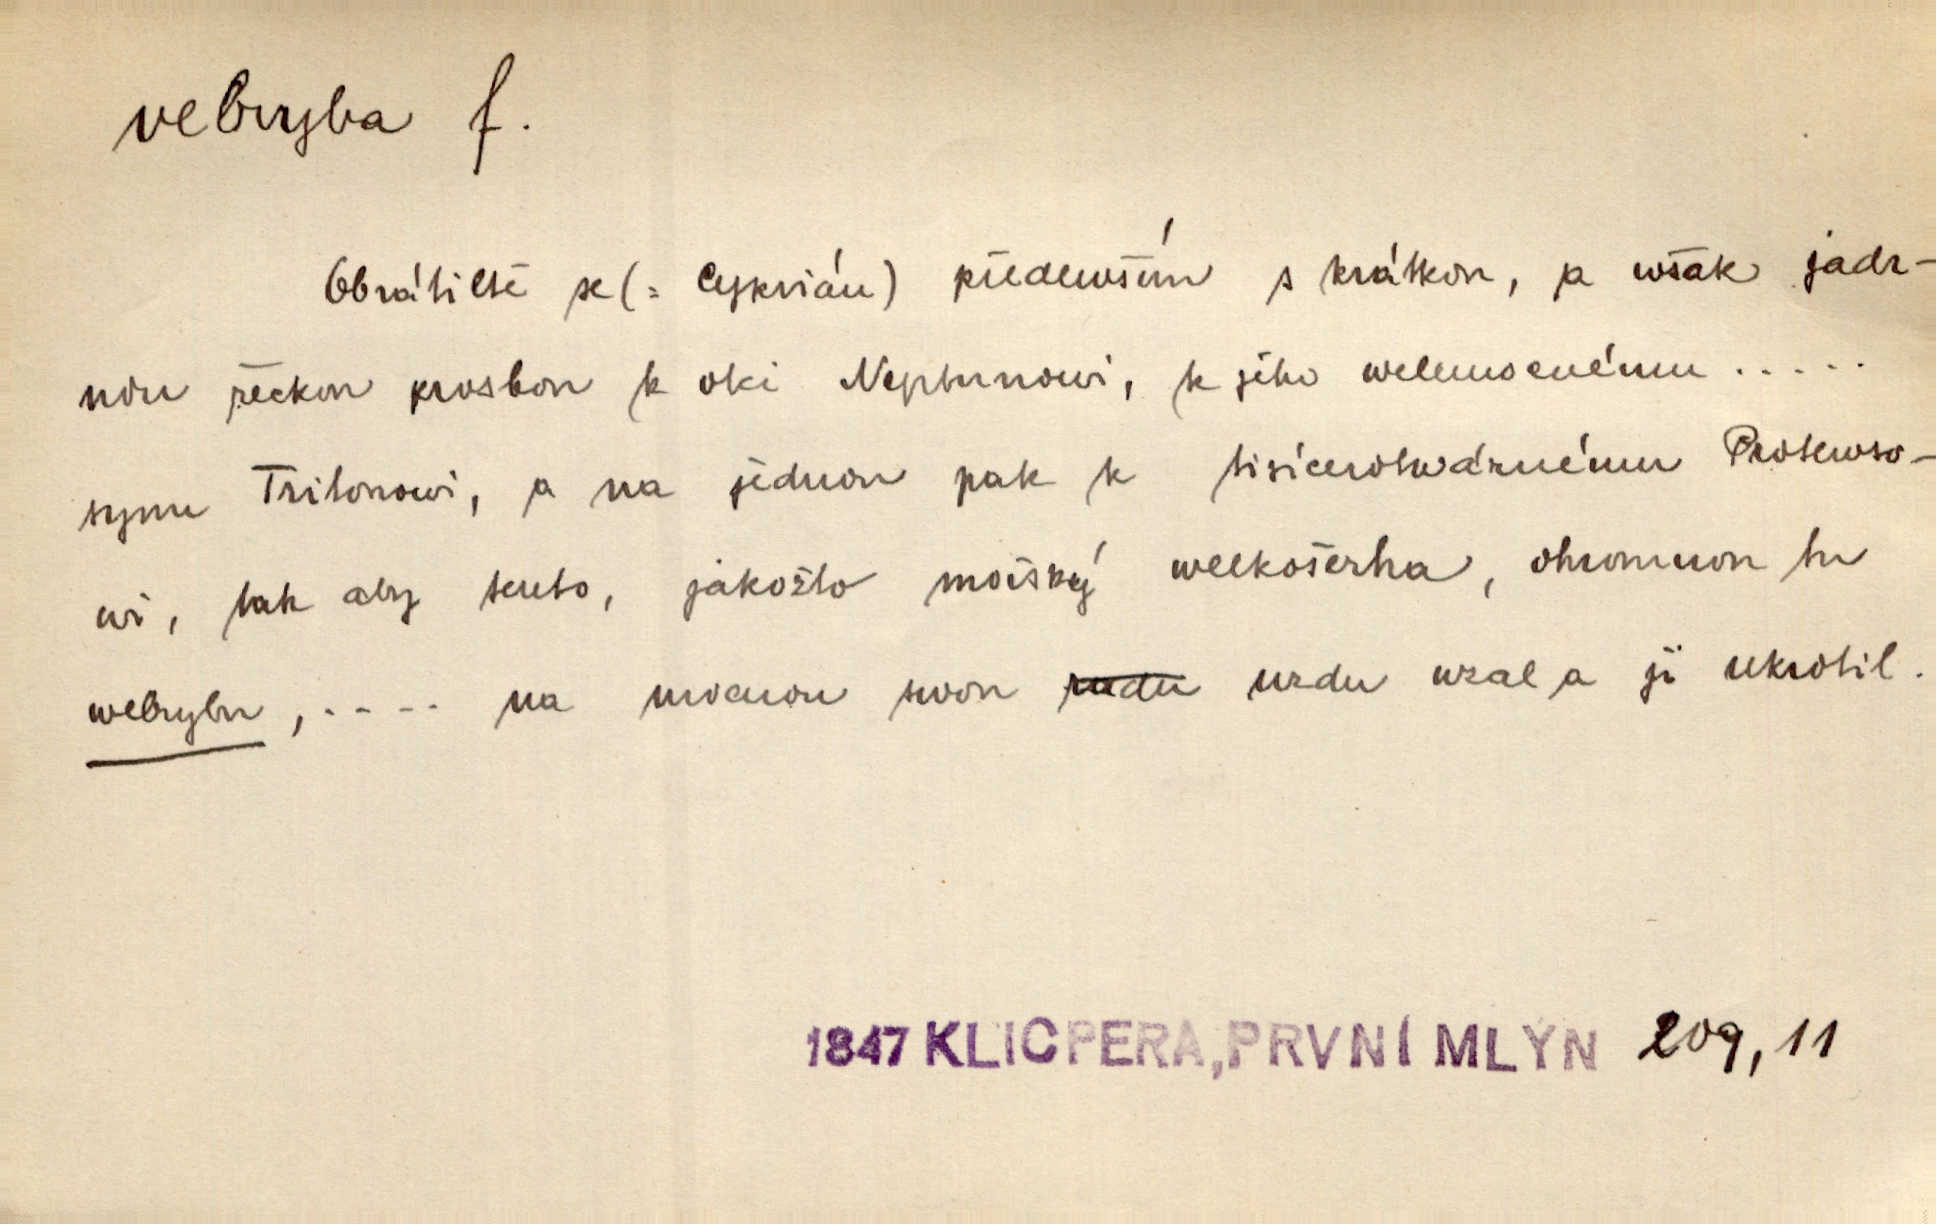 velryba f.
Obrátiltě se (= Cyprián) předewším s krátkou, a wšak jadr-
nou řeckou prosbou k oki Neptunowi, k jeho welemocnému .....
synu Tritonowi, a na jednou pak k tisícerotwárnému Proteuso-
wi, tak aby tento, jakožto mořský welkošerha, ohromnou tu
welrybu, .... na mocnou swou rudu uzdu wzal a ji ukrotil.
1847 KLICPERA, PRVNÍ MLÝN 209, 11